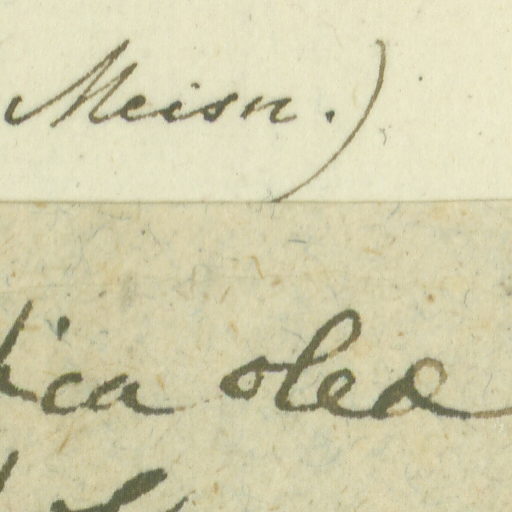 Meisn.)
ica olea